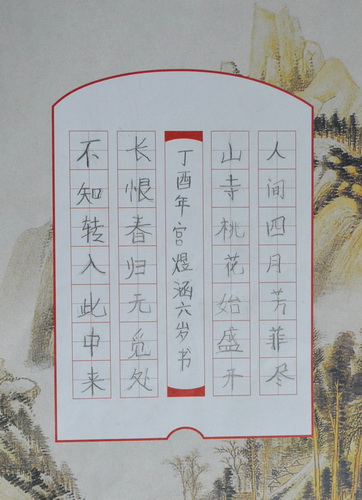 人间四月芳菲尽
山寺桃花始盛开
丁酉年宫煜涵六岁书
长恨春归无觅处
不知转入此中来